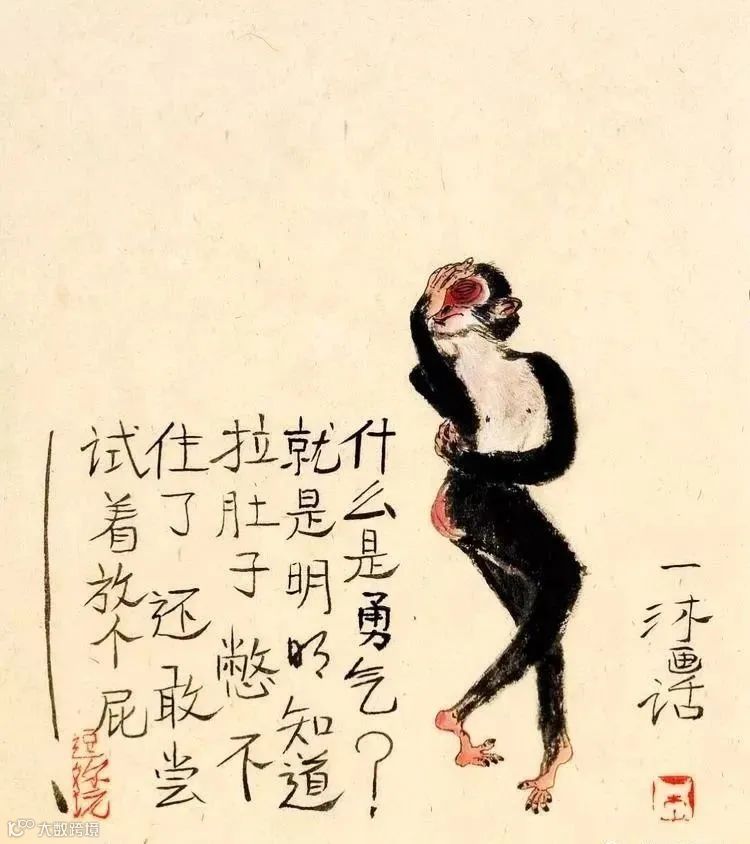 什么是勇气？
就是明明知道
拉肚子憋不
住了还敢尝
试着放个屁
逗你玩
一沐画话
大数跨境